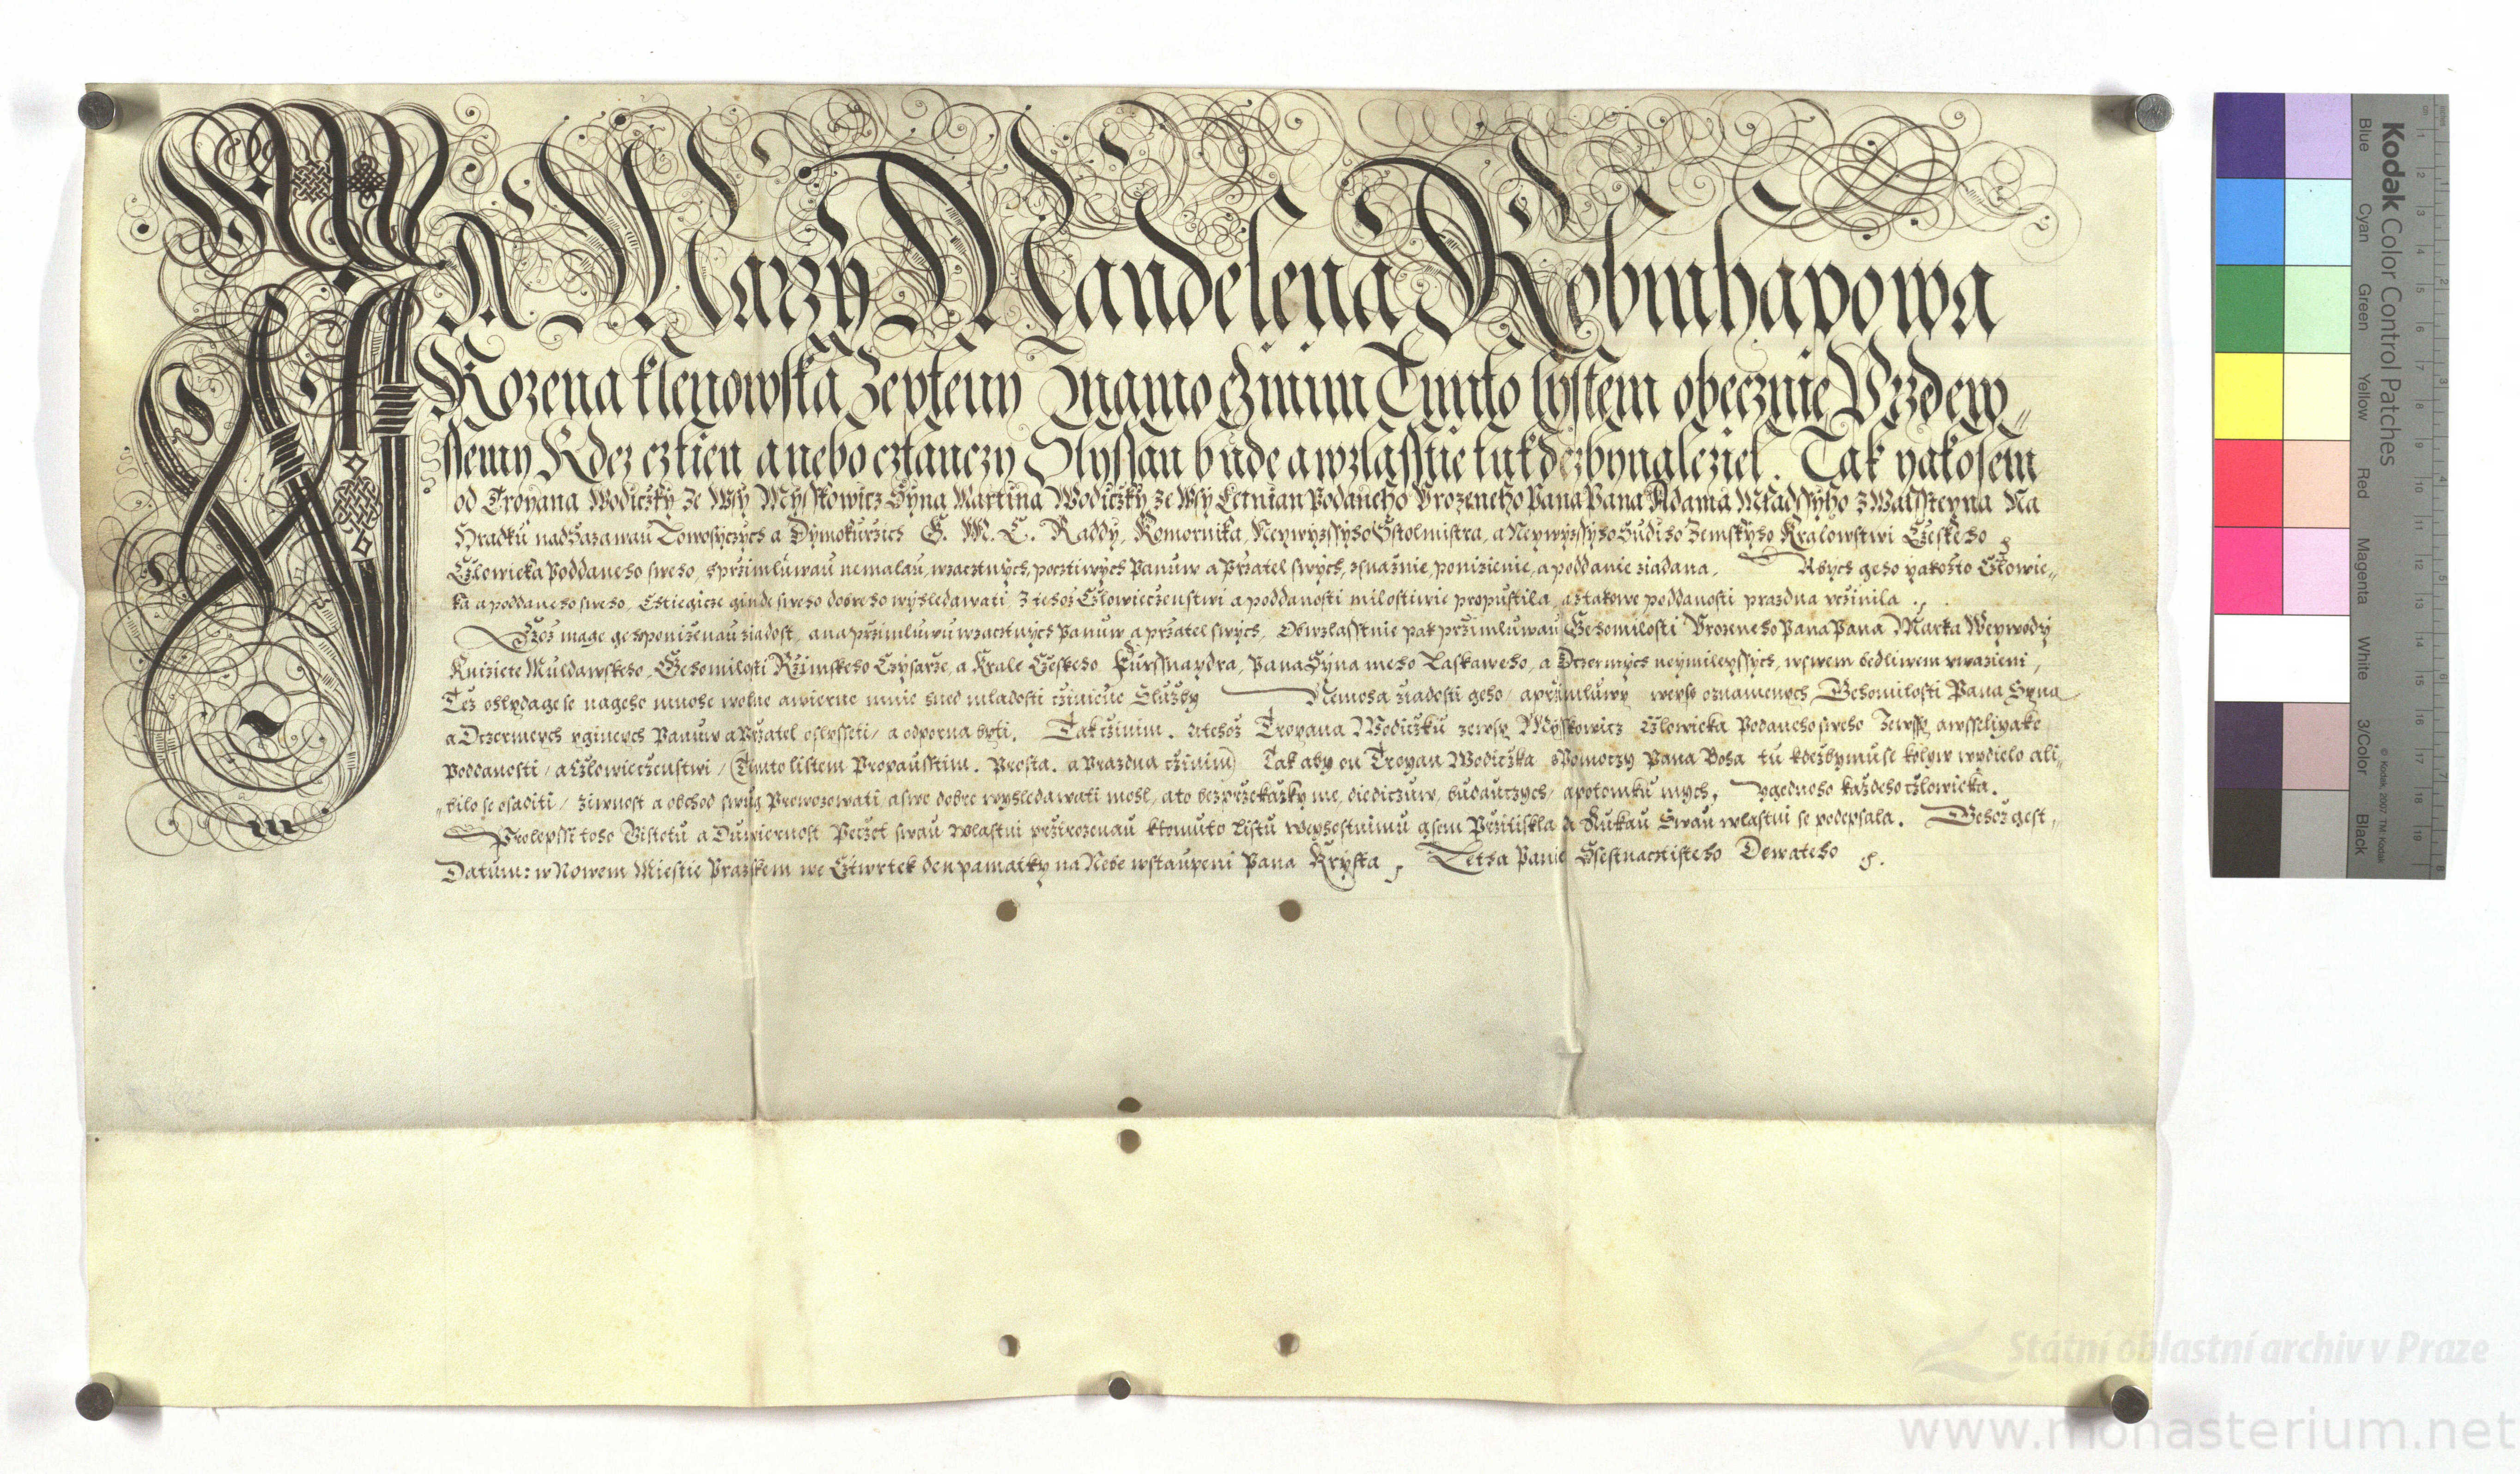 Ja Marzy Mandelena Robmhapowa
Rozena klenowska Zeyteny Znamo czinim Timto lystem obecznie Przdew„
ssemy Kdez cztien anebo cztauczy Slyssan bude a wzlasstie tu kdezbynaleziel. Tak yakosem
od Troyana Wodiczky ze Wsy Mysskowicz Syna Martina Wodiczky ze Wsy Letnian Podaneho Vrozeneho Pana Pana Adama Mladssyho z Walssteyna Na
Hradku nad Sazawau Lowosyczych a Dymokurzich G. M. C. Raddy, Komornika, Neywyzssyho Sstolmistra, a Neywyzssyho Sudiho Zemskyho Kralowstwi Czeskeho
Czlowieka Poddaneho sweho, sprzimluwau nemalau, wzacztnych, pocztiwych Panuw a Przatel swych, zsnaznie, ponizienie, a poddanie ziadana. Abych geho yakozto Czlowie„
ka a poddaneho sweho, Cstiegicze ginde sweho dobreho wyhledawati, z tehoz Czlowieczenstwi a poddanosti milostiwie propustila, a z takowe poddanosti prazdna uczinila.
Kdez mage geho ponizenau ziadost, a na przimluwu wzacztnych Panuw a przatel swych, Obwzlasstnie pak przimluwau Gehomilosti Vrozeneho Pana Pana Marka Weywody
Kniziete Muldawskeho, Gehomilosti Rzimskeho Czysarze, a Krale Czeskeho Furssnaydra, Pana Syna meho Laskaweho, a Dczermych neymileyssych, wswem bedliwem uwazieni,
Tez ohlydagese na geho mnohe wolne a wierne mnie hned mladosti cziniene Sluzby Nemoha ziadosti geho, a przimluwy weyss oznamenych, Gehomilosti Pana Syna
a Dczermych yginych Panuw a Przatel oslysseti, a odporna byti. Tak czinim. Ze tehoz Troyana Wodiczku zewsy Mysskowicz Czlowieka Podaneho sweho Zewssy awsseliyake
Poddanosti, a Czlowieczenstwi, (Timto listem Propausstim. Prosta. a Prazdna czinim) Tak aby on Troyan Wodiczka sPomoczy Pana Boha tu kdezbymuse kolyw widielo ali„
„bilo se osaditi, ziwnost a obchod swug Prowozowati, a swe dobre wyhledawati mohl, a to bezprzekazky me, diediczuw, budauczych, a potomku mych, ygednoho kazdeho czlowieka.
Prolepssi toho Gistotu a Duwiernost Peczet swau wlastni przirozenau ktomuto Listu wegssestnimu gsem Przitiskla a Rukau Swau wlastni se podepsala. Gehoz gest,
Datum: w Nowem Miestie Prazskem we Cztwrtek den pamatky na Nebe wstaupeni Pana Krysta, Letha Panie Ssestnacztisteho Dewateho